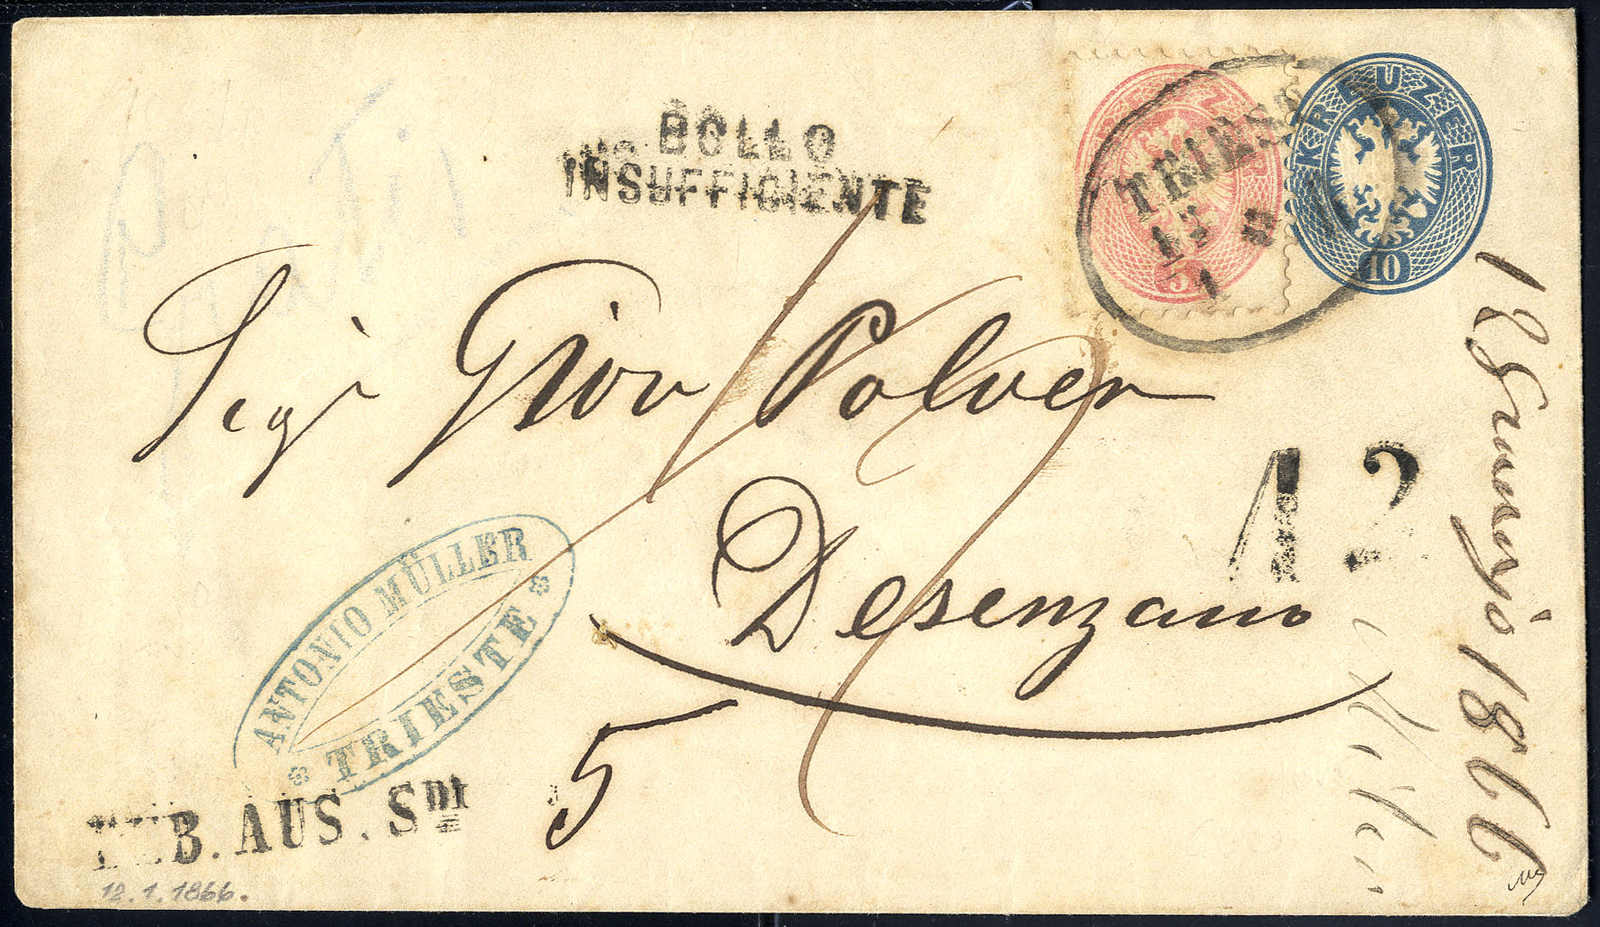 BOLLO
INSUFFICIENTE
KREUZER
10
5
TRIEST
12
1
Sigr Giov Polver
Desenzano
12
ANTONIO MÜLLER
TRIESTE
5
DEB. AUS. SDI
12.1.1866.
12 Gennajo 1866